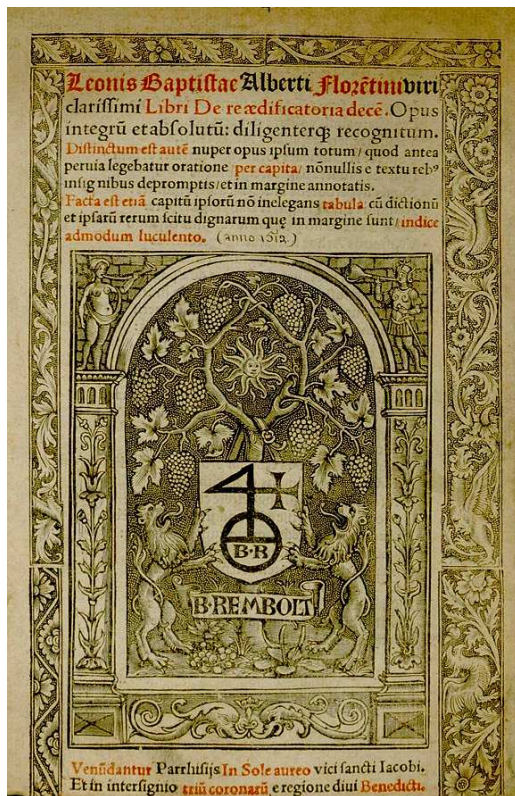 Leonis Baptistae Alberti Florētini viri
clarissimi Libri De re ædificatoria decē. Opus
integrū et absolutū: diligenterq́ȝ recognitum.
Distinctum est autē nuper opus ipsum totum / quod antea
peruia legebatur oratione per capita / nōnullis e textu rebꝰ
insignibus depromptis / et in margine annotatis.
Facta est etiā capitū ipsorū nō inelegans tabula cū dictionū
et ipsarū rerum scitu dignarum quę in margine sunt / indice
admodum luculento. (anno 1512.)
B·R
B·REMBOLT
Venūdantur Parrhisijs In Sole aureo vici sancti Iacobi.
Et in intersignio triū coronarū e regione diui Benedicti.